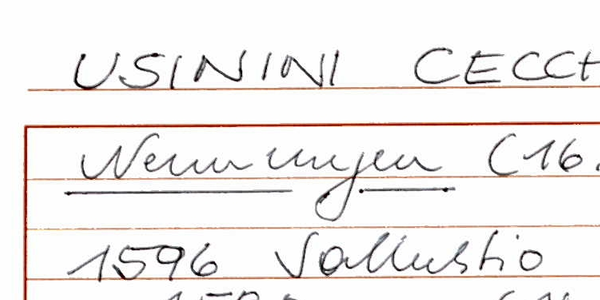 USININI CECCH
Nennungen (16.
1596 Sallustio